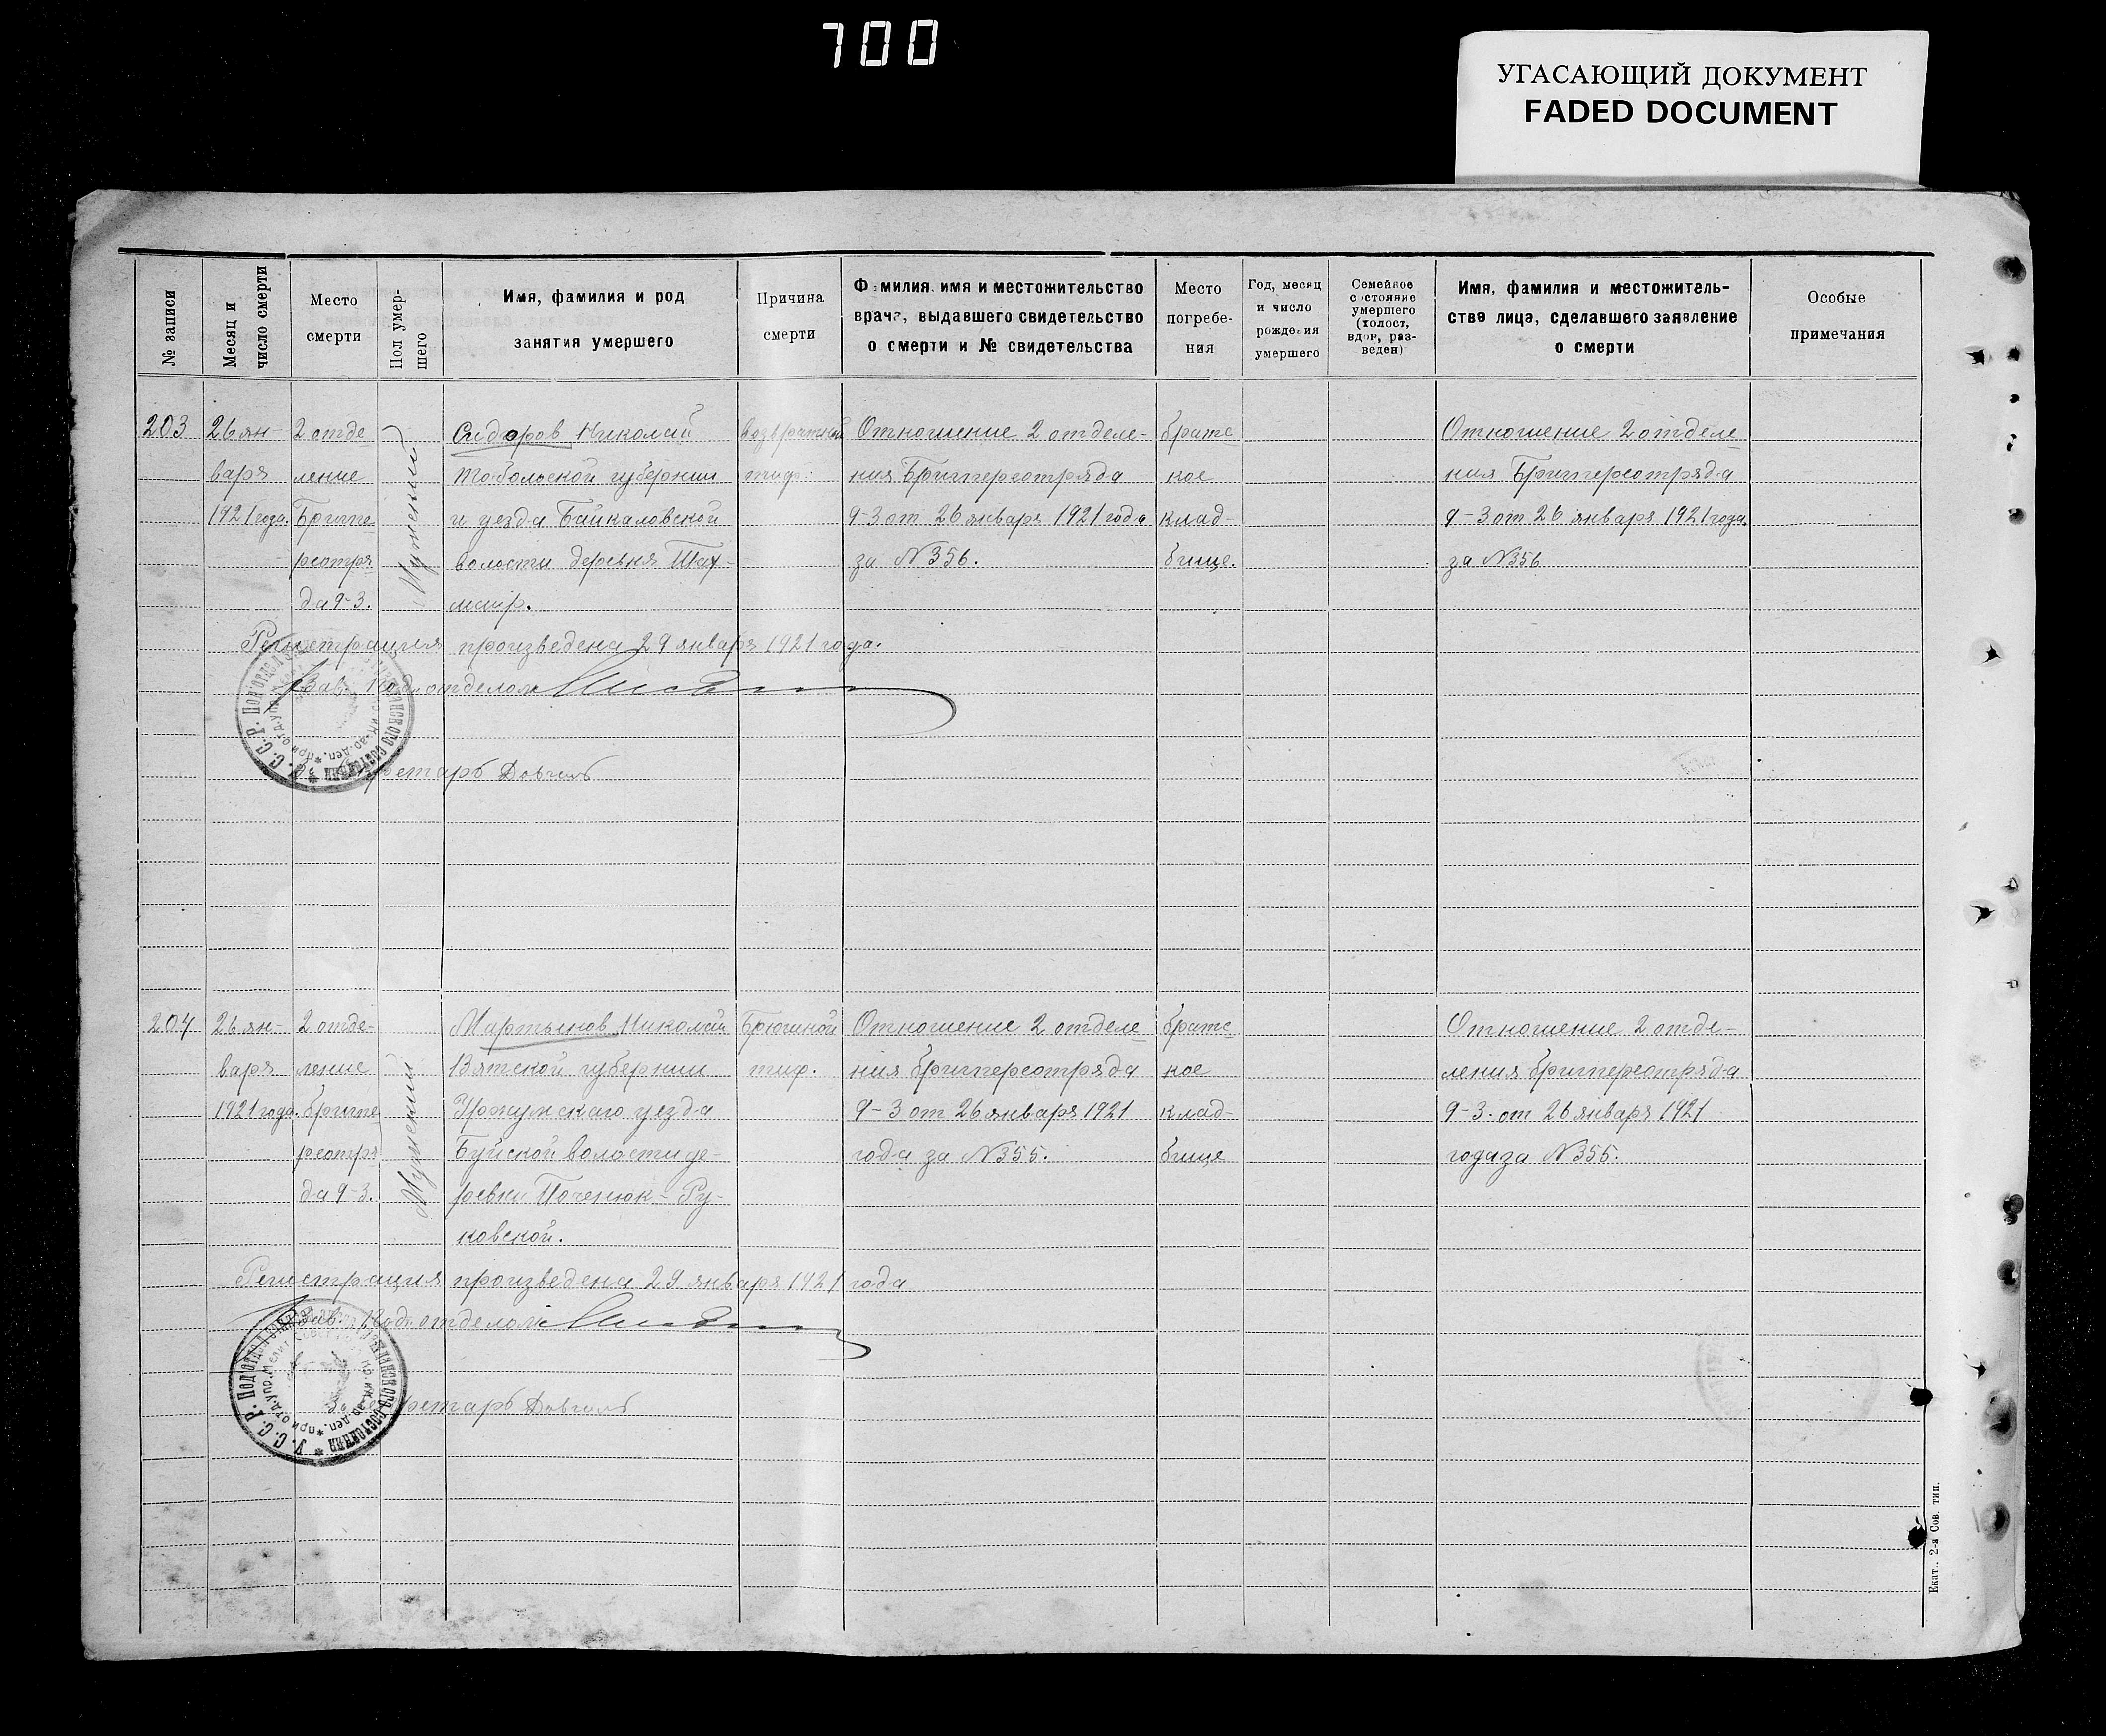 700
УГАСАЮЩИЙ ДОКУМЕНТ
FADED DOCUMENT
№ записи
Месяц и число смерти
Место смерти
Пол умершего
Имя, фамилия и род
занятия умершего
Причина
смерти
Фамилия, имя и местожительство
врача, выдавшего свидетельство
о смерти и № свидетельства
Место
погребе-
ния
Год, месяц
и число
рождения
умершего
Семейное
состояние
умершего
(холост,
вдов, раз-
веден)
Имя, фамилия и местожитель-
ство лица, сделавшего заявление
о смерти
Особые
примечания
203
26 ян-
варя
1921 года.
2 отде
ление
Бригпе
реотря
да 9-3.
Мужеский
Сидоров Николай
Тобольской губернии
и уезда Байкаловской
волости деревня
возвратный
тиф.
Отношение 2 отделе-
ния Бригпереотряда
9-3 от 26 января 1921 года
за №356.
братс
кое
клад-
бище.
Отношение 2 отделе
ния Бригпереотряда
9-3 от 26 января 1921 года.
за №356
Регистрация произведена 29 января 1921 года.
Зав. Подотделом
Секретарь Довгель
204
26 ян-
варя
1921 года.
2 отде-
ление
бригпе
реотря
да 9-3.
Мужеский
Мартынов Николай
Вятской губернии
Уржумскаго уезда
Буйской волости де-
ревни Поченюк-Ру-
ковской.
Брюшной
тиф.
Отношение 2 отделе
ния бригпереотряда
9-3 от 26 января 1921
года за №355.
братс
кое
клад-
бище
Отношение 2 отде-
ления бригпереотряда
9-3. от 26 января 1921
года за №355.
Регистрация произведена 29 января 1921 года
Зав. Подотделом
Секретарь Довгель
Екат. 2-я Сов. тип.